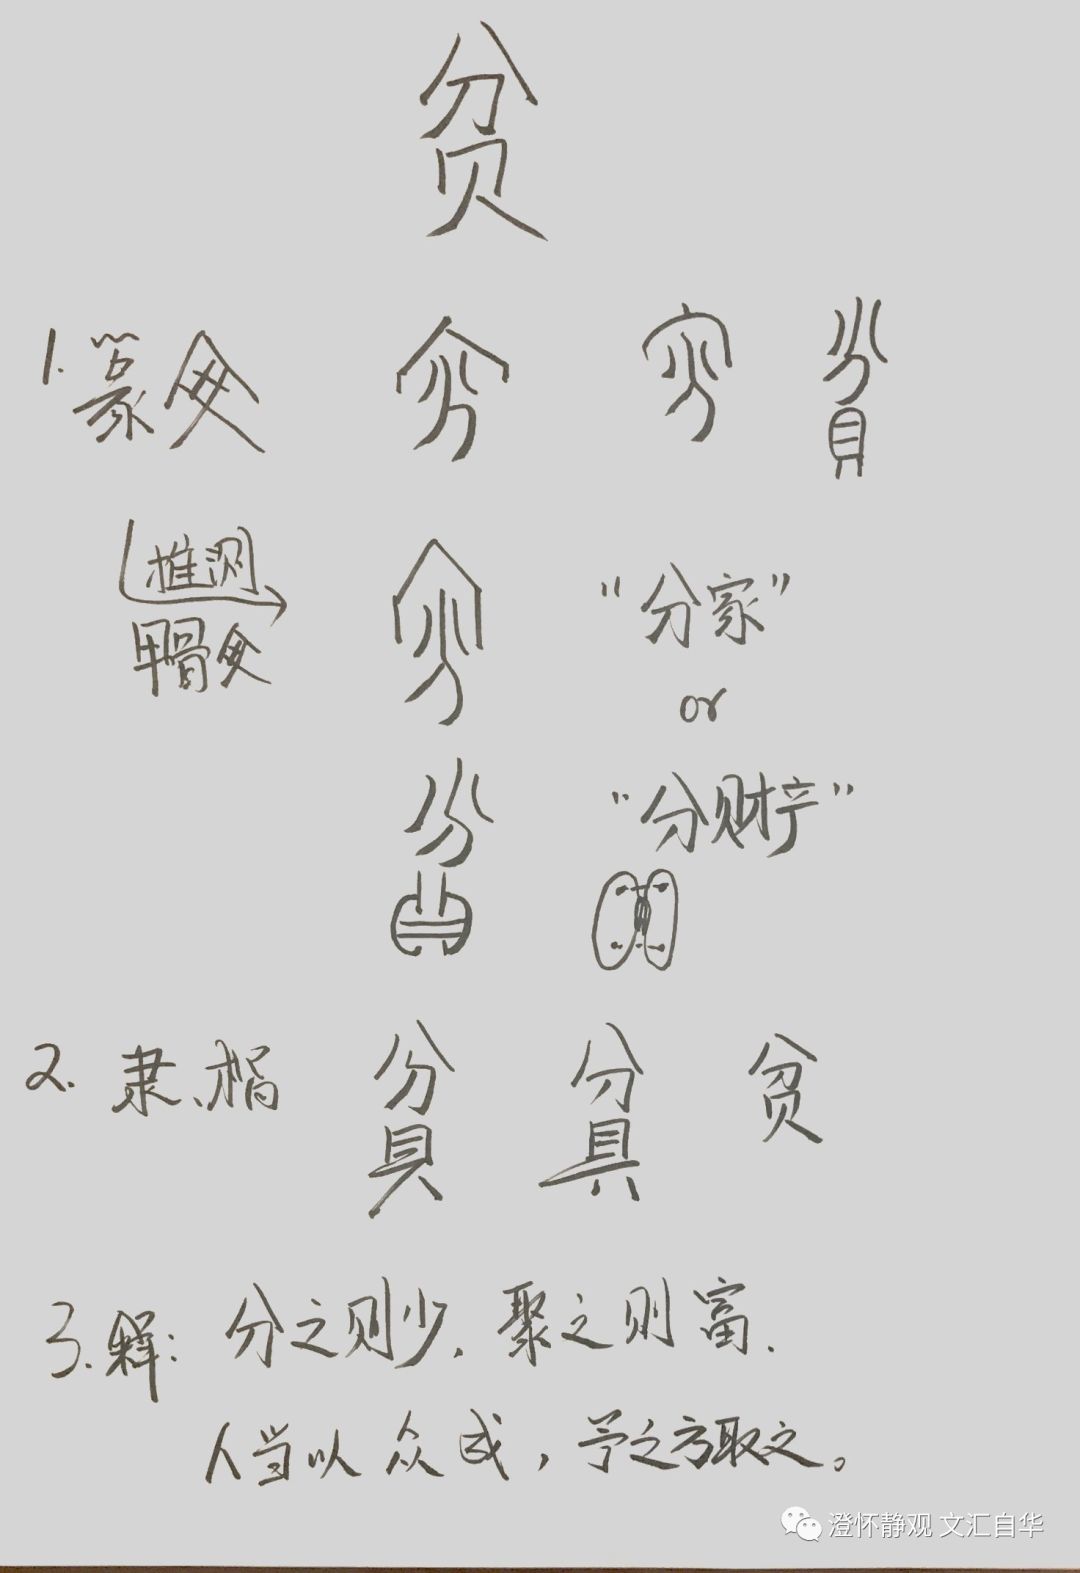 贫
1.篆文 貧
推测
甲骨文
“分家”
or
“分财产”
2. 隶、楷 貧 貧 贫
3.释：分之则少.聚之则富.
人当以众成，予之方取之。
澄怀静观 文汇自华